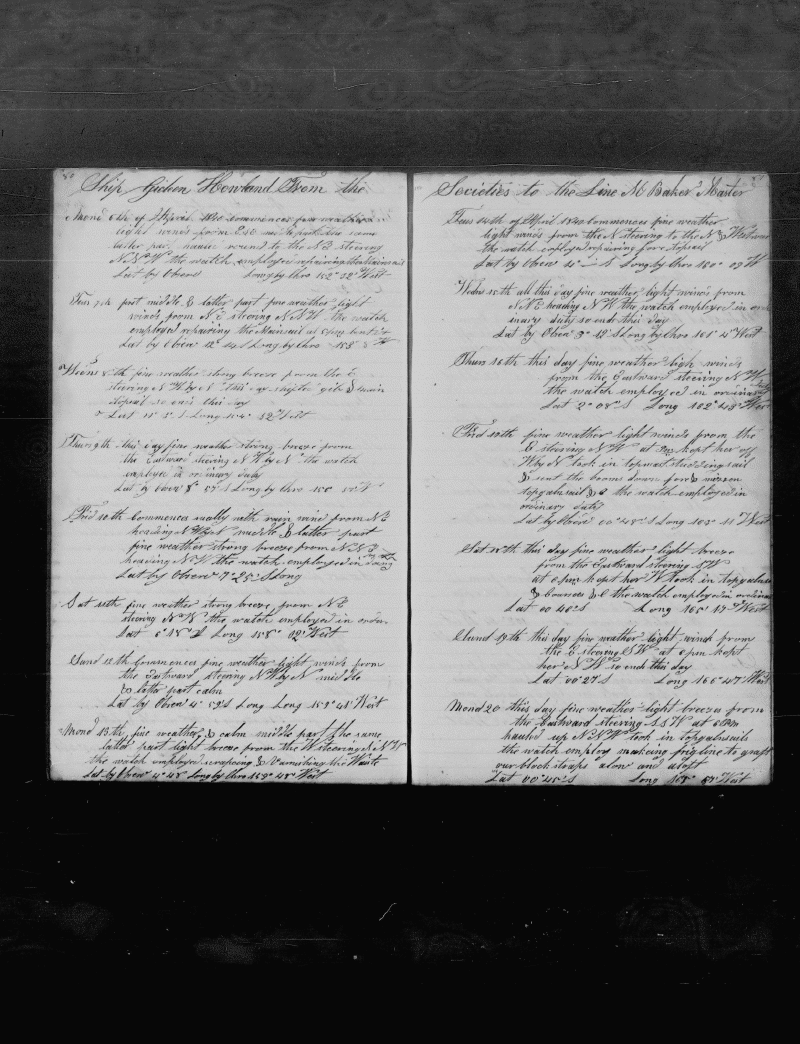 Ship Gideon Howland From the
Mond 6th of April 1840 commences fine weather
light winds from ESE middle part the same
latter part hauls round to the NE steering
NNW the watch employed repairing the Mainsail
Lat by Obsn Long by Chro 152° 32' West
Tues 7th part middle & latter part fine weather light
winds from NE steering NNW the watch
employed repairing the Mainsail at
Lat by Obsn 12° Long by Chro 153° W
Wedns 8th fine weather strong breeze from the E
steering NW by N this day main
topsail so ends this day
Lat S Long 154° 52' West
Thurs 9th this day fine weather strong breeze from
the Eastward steering NW by N the watch
employed in ordinary duty
Lat by Obsn 8° 57' S Long by Chro W
Frid 10th Commences squally with rain wind from NE
heading NW by N middle & latter part
fine weather strong breeze from NNE
heading NW the watch employed in
Lat by Obsn 7° 25' S Long
Sat 11th fine weather strong breeze from NE
steering NW the watch employed in
Lat 6° 18' S Long 158° 02' West
Sund 12th Commences fine weather light winds from
the Eastward steering NW by N middle
& latter part calm
Lat by Obsn 4° 59' S Long Long 159° West
Mond 13th fine weather & calm middle part the same
latter part light breeze from the W steering NNW
the watch employed scraping & varnishing the Waists
Lat by Obsn 4° 48' Long by Chro 159° 48' West
Societies to the Line M Baker Master
Tues 14th of April 1840 Commences fine weather
light winds from the N steering to the N & Westward
the watch employed repairing fore topsail
Lat by Obsn 4° S Long by Chro 160° 09' W
Wedns 15th all this day fine weather light winds from
NNE heading NW the watch employed in ord
inary duty so ends this day
Lat by Obsn 3° S Long by Chro 161° 4' West
Thurs 16th this day fine weather light winds
from the Eastward steering NW
the watch employed in ordinary
Lat 2° 08' S Long 162° 43' West
Frid 17th fine weather light winds from the
E steering NW at kept her off
W by N took in topmast studdingsail
& sent the booms down fore & mizzen
topgalnsail & the watch employed in
ordinary duty
Lat by Obsn 00° 48' S Long 163° 11' West
Sat 18th this day fine weather light breeze
from the Eastward steering SW
at 6 pm kept her W took in topgalnsails
& Courses the watch employed in ordinary
Lat 00 40' S Long 165° 17' West
Sund 19th this day fine weather light winds from
the E steering SW at 6 pm kept
her NW so ends this day
Lat 00° 27' S Long 166° 47' West
Mond 20 this day fine weather light breezes from
the Eastward steering SSW at 6 pm
hauled up NNW took in topgalnsail
the watch employ making frigline to graft
our block straps alow and aloft
Lat 00° 45' S Long West